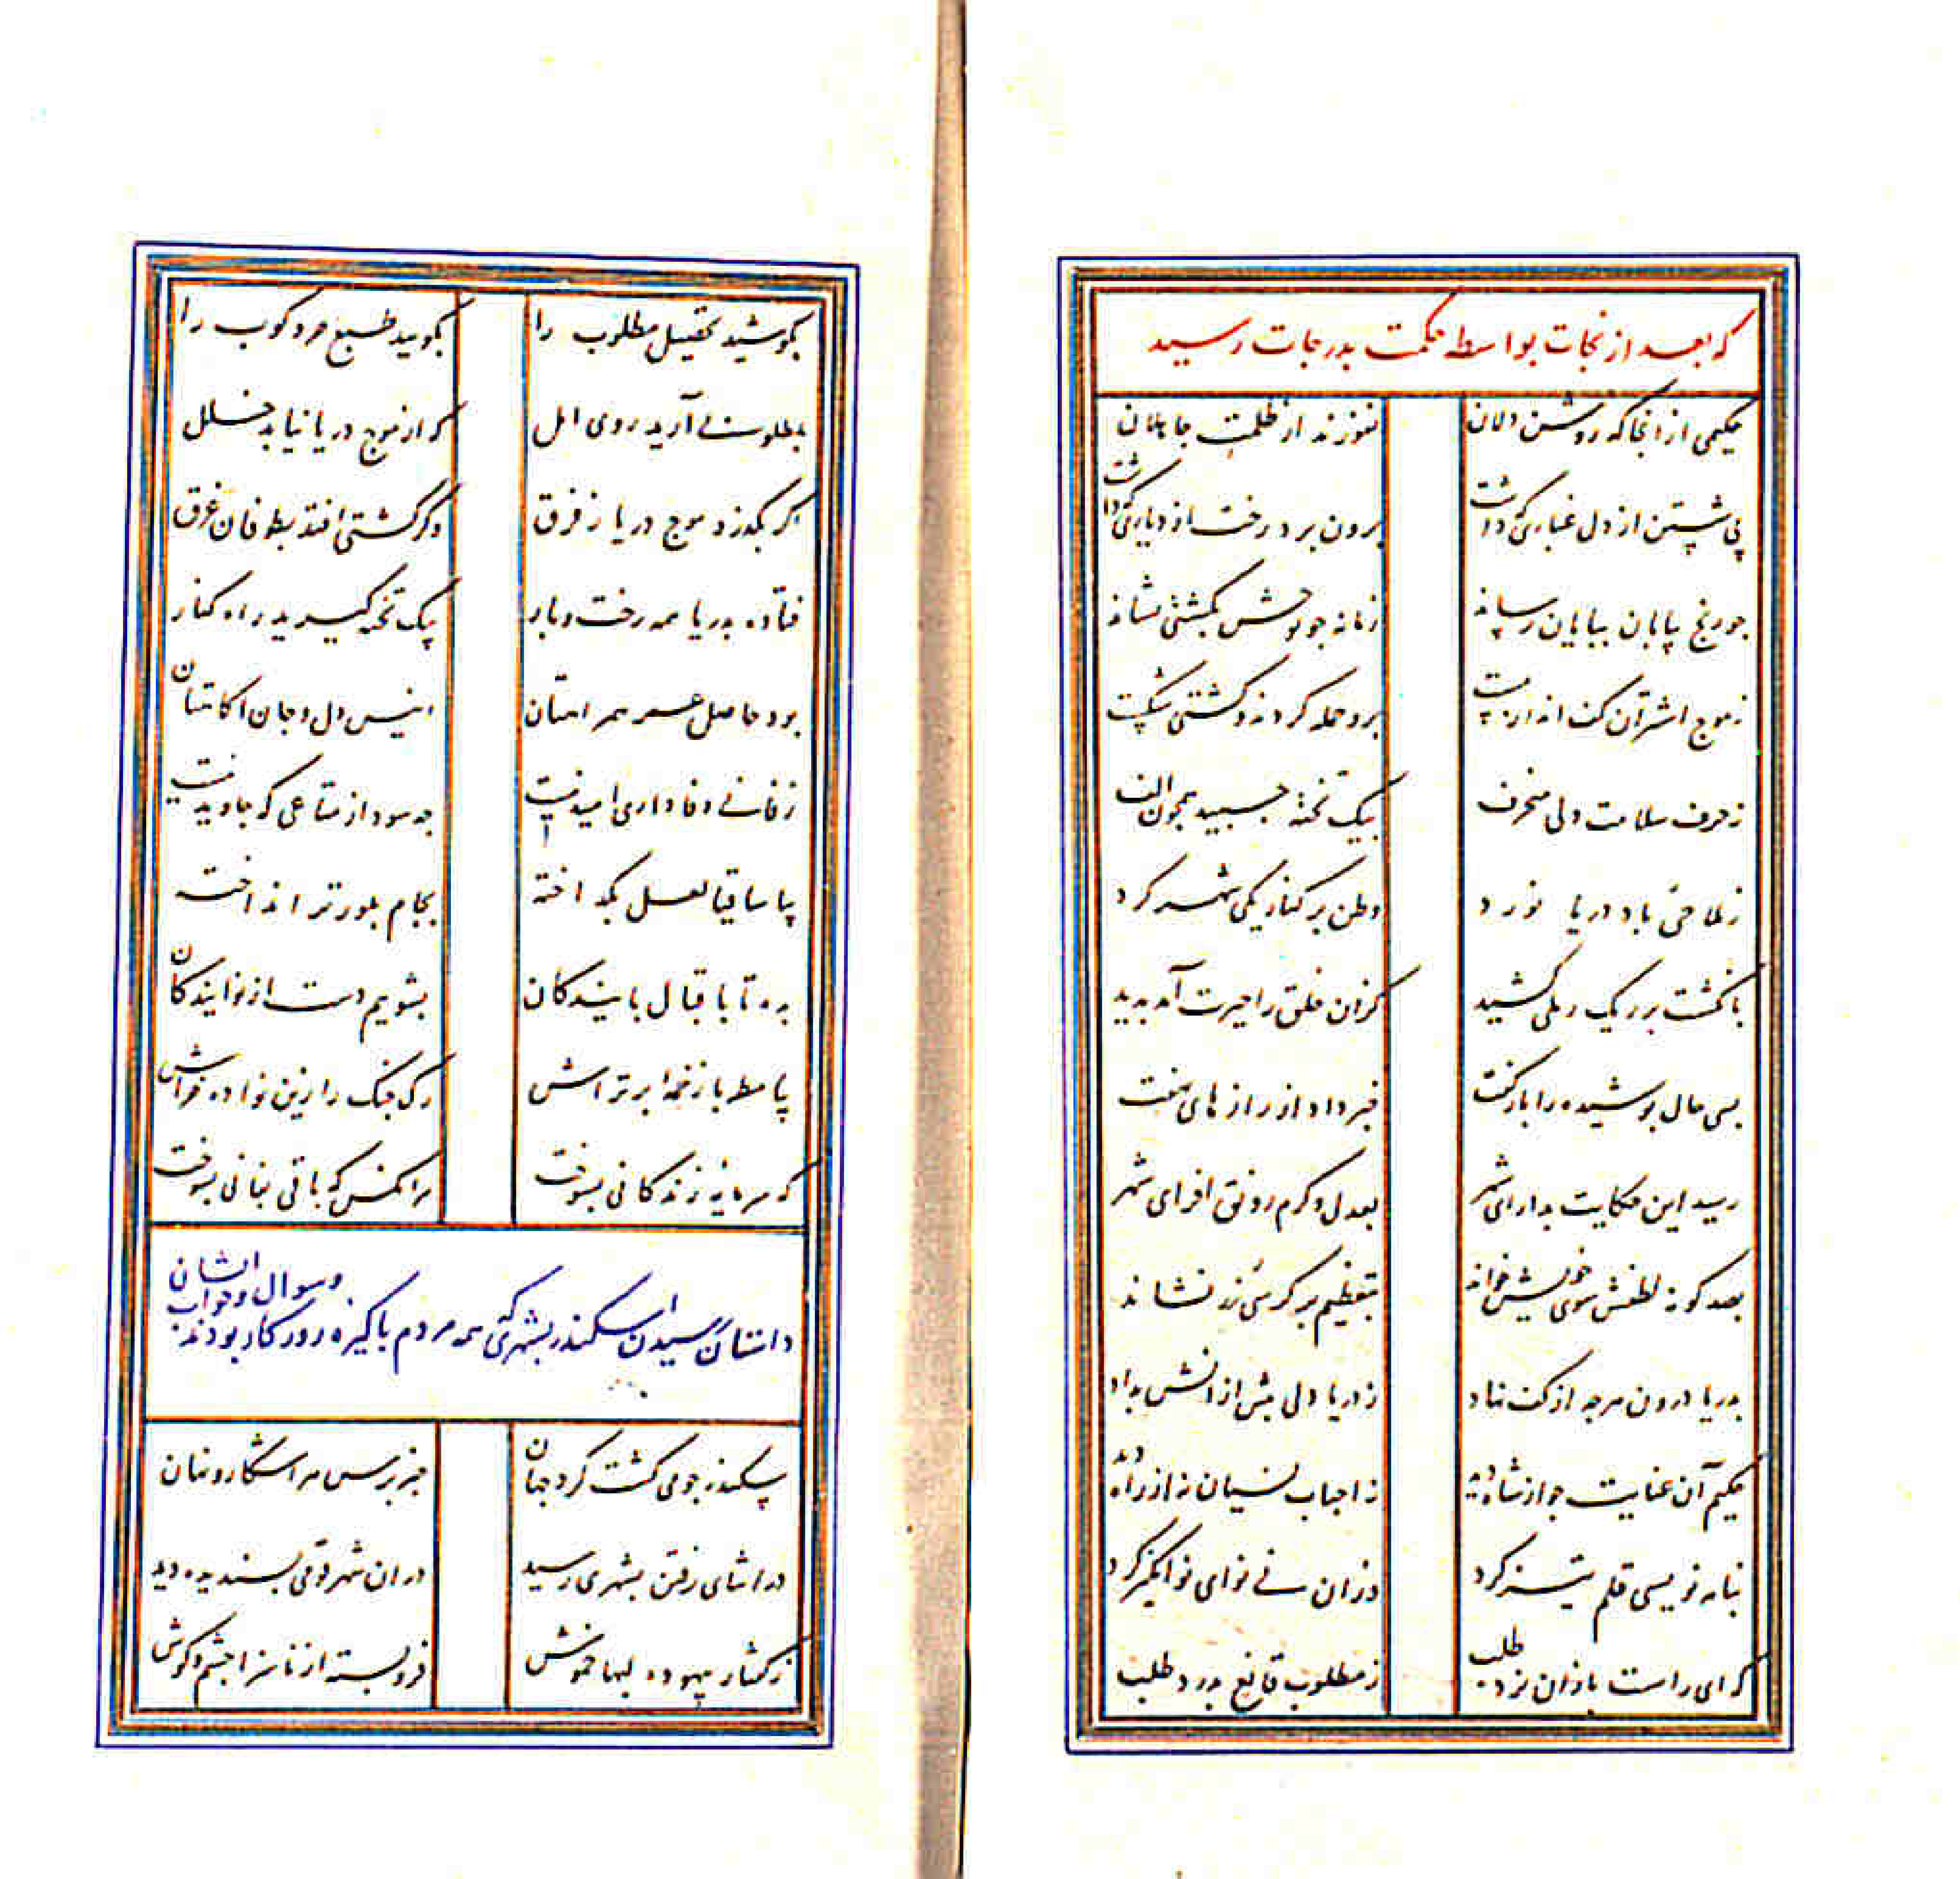 که بعد از نجات بواسطه حکمت بدرجات رسید
حکیمی از انجا که روشن دلان نفوزند از ظلمت جاهلان
پی شستن از دل غباری که داشت برون برد رخت از دیاری که داشت
جو رنج بیابان بپایان رساند زمانه جو نوحش بکشتی نشاند
زموج اشتر آن کف انداز مست برو حمله کردند و کشتی شکست
زحرف سلامت ولی منحرف بیک تخته جسبید همجون الف
زملاحی باد دریا نورد وطن بر کنار یکی شهر کرد
بانکشت بر ریک رملی کشید کزان خلق را حیرت آمد بدید
بسی حال بوشیده را باز کفت خبر داد از رازهای نهفت
رسید این حکایت بدارای شهر بعدل و کرم رونق افزای شهر
بصد کونه لطفش سوی خویش خواند بتعظیم بر کرسی زر نشاند
بدریا درون هرجه از کف نهاد زدریا دلی بیش از انش بداد
حکیم آن عنایت جو از شاه دید ز احباب نسیان نه از راه دید
بنامه نویسی قلم تیز کرد در ان نی نوای نو انکیز کرد
که ای راست بازان نرد طلب زمطلوب قانع بدرد طلب
بکوشید تحصیل مطلوب را بکوبید طبع خرد کوب را
بمطلوبی آرید روی امل که از موج دریا نیابد خلل
اکر بکذرد موج دریا ز فرق وکر کشتی افتد بطوفان غرق
فتاده بدریا همه رخت و بار بیک تخته کیرید راه کنار
بود حاصل عمر همراهتان انیس دل و جان اکاهتان
زفانی وفاداری امید نیست جه سود از متاعی که جاوید نیست
بیا ساقیا لعل بکداخته بجام بلور تر انداخته
بده تا باقبال بایندکان بشویم دست از نوایندکان
بیا مطربا زخمه ابر تراش رک جنک را زین نوا ده خراش
که سرمایه زندکانی بسوخت هر انکس که باقی بفانی بسوخت
داستان رسیدن اسکندر بشهری که همه مردم باکیزه روزکار بودند وسوال وجواب ایشان
سکندر جو می کشت کرد جهان خبر برس هر اشکار و نهان
در اثنای رفتن بشهری رسید در ان شهر قومی بسندیده دید
زکفتار بیهوده لبها خموش فروبسته از ناسزا جشم و کوش